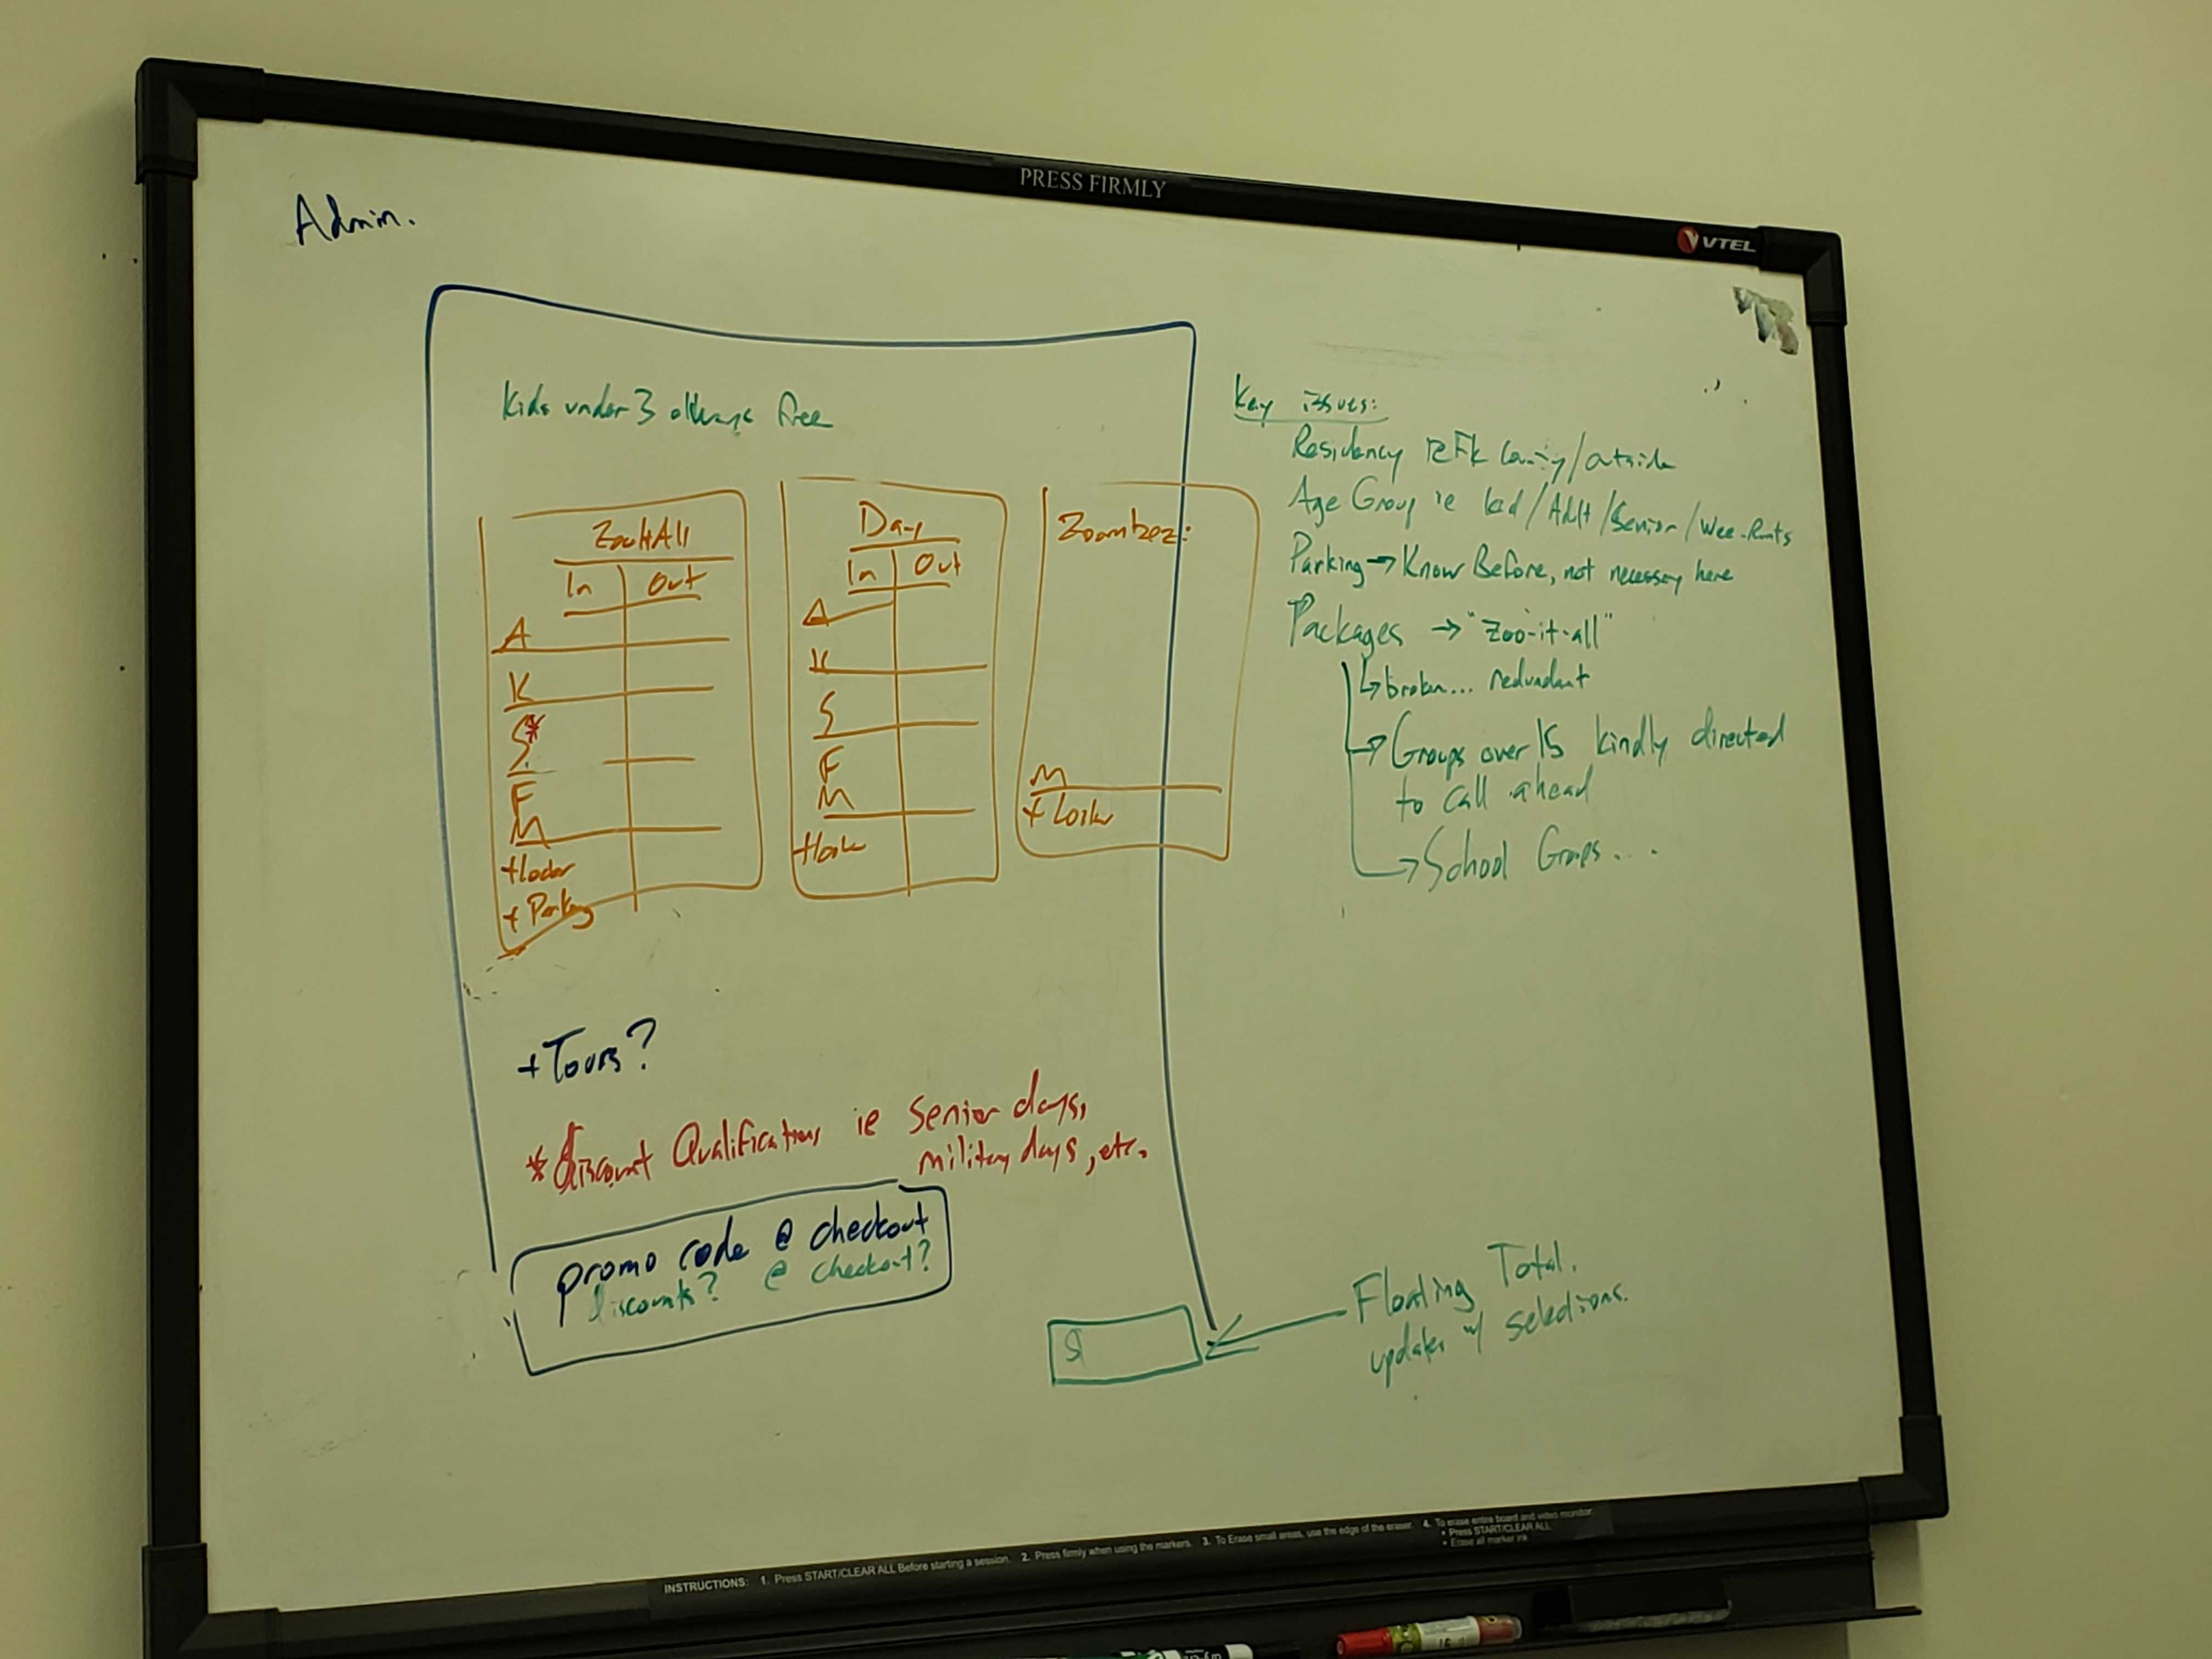 PRESS FIRMLY
VTEL
Admin.
Kids under 3 always free
ZooItAll
In Out
A
K
S*
F
M
+locker
+ Parking
Day
In Out
A
K
S
F
M
+lock
Zoombez:
M
+ Locker
+Tours?
*discount Qualifications ie Senior days,
military days, etc.
promo code @ checkout
discounts? @ checkout?
$
Key issues:
Residency County/outside
Age Group ie kid/Adlt/Senior/Wee-Runts
Parking → Know Before, not necessary here
Packages → "Zoo-it-all"
↳ broken... redundant
→ Groups over 15 kindly directed
to call ahead
→ School Groups...
Floating Total.
updates w/ selections.
INSTRUCTIONS: 1. Press START/CLEAR ALL Before starting a session. 2. Press firmly when using the markers. 3. To Erase small areas, use the edge of the eraser. 4. To erase entire board and video monitor
• Press START/CLEAR ALL
• Erase all marker ink